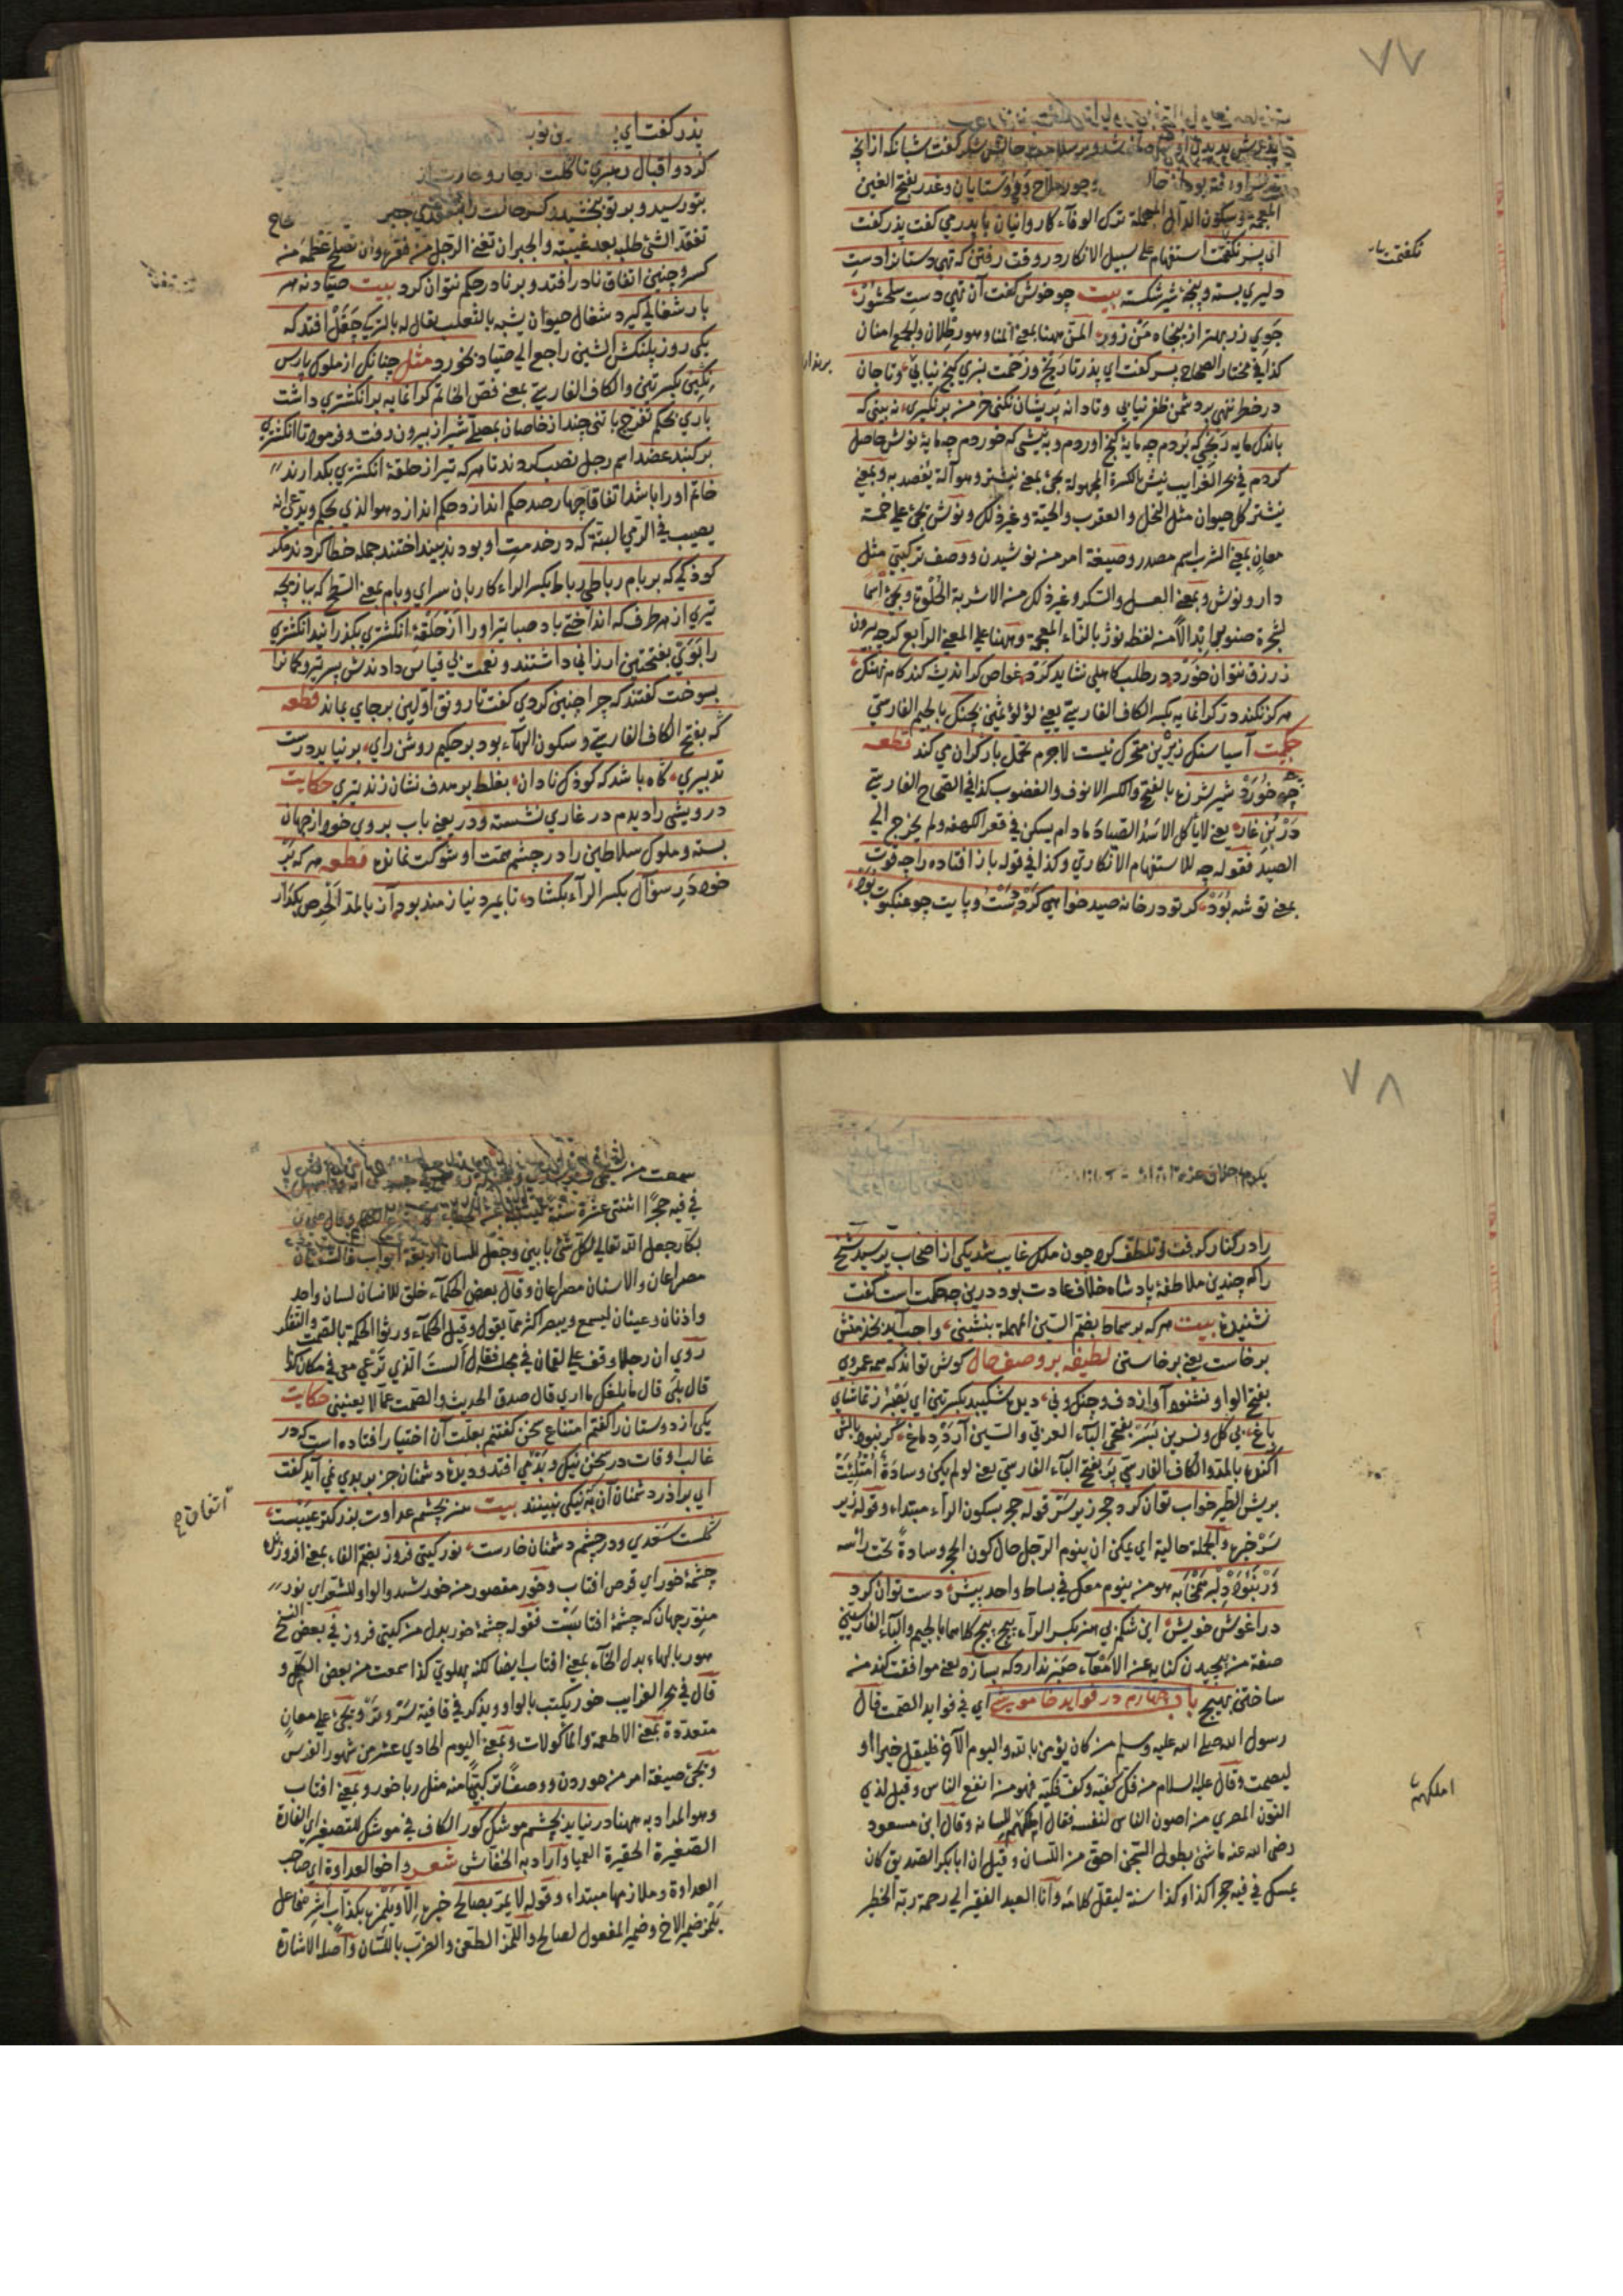 ٧٧
بديدن او شادماني كرد وبر سلامت حالش شكر كفت شبانكه از انچه
برسر او رفته بود از حال وجور ملاح وروستايان وغدر بفتح الغين
المعجمة وسكون الدال المهملة ترك الوفاء كاروانيان با پدر مي كفت پذر كفت
اي پسر نكفتمت استفهام على سبيل الانكار در وقت رفتن كه تهي دستانرا دست
نكفتمت
دليري بسته وپنجهٔ شيري شكسته بيت چو خوش كفت آن تهي دست سلحشور
جوي زر بهتر از پنجاه من زور المن ههنا بمعنى المنا وهو رطلان والجمع امنان
كذا في مختار الصحاح پسر كفت اي پذر تا رنج وزحمت نبري كنج نيابي وتا جان
در خطر ننهي بر دشمن ظفر نيابي وتا دانه پريشان نكني خرمن برنكيري نه بيني كه
باندك مايه رنجي كه بردم چه مايهٔ كنج اوردم وبنيشى كه خوردم چه مايهٔ نوش حاصل
كردم في بحر الغرايب نيش بالكسرة المجهولة يجئ بمعنى نيشتر وهو آلة يفصد به وبمعنى
نيشتر كل حيوان مثل النحل والعقرب والحية وغير ذلك ونوش يجئ على خمسة
معان بمعنى الشرب اسم مصدر وصيغة امر من نوشيدن ووصف تركيبي مثل
دارو نوش وبمعنى العسل والسكر وغير ذلك من الاشربة الحلوة ويجئ اسما
لشجرة صنوبر ابتدالا من لفظ نوژ بالزاء المعجمة وههنا على المعنى الرابع كرچه بيرون
ز رزق نتوان خورد در طلب كاهلي نشايد كرد غواص كر انديشه كند كام نهنك
هركز نكند در كرانمايه بكسر الكاف الفارسية يعني لؤلؤ ثمين بچنك بالجيم الفارسي
حكمت آسيا سنك زيرين متحرك نيست لاجرم تحمل بار كران مي كند قطعه
چه خورد شير شرزه بالفتح والكسر الانوف والغضوب كذا في الصحاح الفارسية
در بن غار يعني لا يأكل الاسد الصياد مادام يسكن في قعر الكهف ولم يخرج الى
الصيد فقوله چه للاستفهام الانكاري وكذا في قوله باز افتاده را چه قوت
بمعنى توشه بود كر تو در خانه صيد خواهي كرد دست وپايت چو عنكبوت بود
پذر كفت اي
كرد واقبال رهبري تا كلت از خار وخارت از
بتو رسيد وبر تو ببخشيد وكسر حالت را
تفقد الشئ طلبه بعد غيبته والجبر ان تغني الرجل من فقره وان تصلح عظمه من
كسر وچنين اتفاق نادر افتد وبر نادر حكم نتوان كرد بيت صياد نه هر
بار شغالي كيرد شغال حيوان يشبه بالثعلب يقال له بالتركي جقل افتد كه
يكى روز پلنكش الشين راجع الى صياد بخورد مثل چنانكه از ملوك پارس
نكيني بكسرتين والكاف الفارسية بمعنى فص الخاتم كرانمايه بر انكشتري داشت
باري بحكم تفرج با تني چند از خاصان بمصلاى شيراز بيرون رفت وفرمود تا انكشتري
بر كنبد عضد اسم رجل نصب كردند تا هر كه تير از حلقهٔ انكشتري بكذارند
خاتم او را باشد اتفاقا چهار صد حكم انداز وحكم انداز هو الذي يحكم ويدعى انه
يصيب في الرمي البتة كه در خدمت او بودند بينداختند جمله خطا كردند مكر
كوذكي كه بر بام رباطي رباط بكسر الراء كاربان سراي وبام بمعنى السطح كه ببازيچه
تيري از هر طرف كه انداختي باد صبا تير او را از حلقهٔ انكشتري بكذرانيد انكشتري
را بوي بفتحتين ارزاني داشتند ونعمت بي قياس دادندش پسر تير وكمانرا
بسوخت كفتند كه چرا چنين كردي كفت تا رونق اولين بر جاي بماند قطعه
كه بفتح الكاف الفارسية وسكون الهاء بود بر حكيم روشن راي بر نيايد درست
تدبيري كاه باشد كه كوذك نادان بغلط بر هدف نشان زند تيري حكايت
درويشي را ديدم در غاري نشسته ودر يعني باب بروي خود از جهان
بسته وملوك وسلاطين را در چشم همت او شوكت نمانده قطعه هر كه بر
خود در سؤال بكسر الراء بكشاد تا بميرد نيازمند بود آز بالمد الحرص بكذار
٧٨
را در كنار كرفت وتلطف كرد چون ملك غايب شد يكى از اصحاب پرسيد شيخ
را كه چندين ملاطفهٔ پادشاه خلاف عادت بود درين چه حكمت است كفت
نشنيدهٔ بيت هر كه بر سماط بضم السين المهملة بنشيني واجب آيد بخدمتش
برخاست يعني برخاستن لطيفه بر وصف حال كوش تواند كه همه عمر وي
بفتح الواو نشنود آواز دف وچنك وني ديده شكيبد بكسرتين اي يصبر ز تماشاي
باغ بي كل ونسرين بسر بفتحي الباء العربي والسين آرد دماغ كر نبود بالش
آكنده بالمد والكاف الفارسي پر بفتح الباء الفارسي يعني لو لم يكن وسادة امتلئت
بريش الطير خواب توان كرد حجر زير سر قوله حجر بسكون الراء مبتداء وقوله زير
سر خبره والجملة حالية اي يمكن ان ينوم الرجل حال كون الحجر وسادة تحت رأسه
ور نبود دلبر همخوابه هو من ينوم معك في بساط واحد پيش دست توان كرد
در آغوش خويش اين شكم بي هنر بكسر الراء پيچ پيچ كلاهما بالجيم والباء الفارسيتين
صفة من پيچيدن كناية عن الامعاء صبر ندارد كه بسازد يعني موافقت كند من
ساختن بهيچ باب چهارم در فوايد خاموشي اي في فوايد الصمت قال
رسول الله صلى الله عليه وسلم من كان يؤمن بالله واليوم الآخر فليقل خيرا او
ليصمت وقال عليه السلام من فك كفيه وكف فكيه فهو من انفع الناس وقيل لذي
النون المصري من اصون الناس لنفسه فقال املكهم للسانه وقال ابن مسعود
املكهم
رضى الله عنه ما شئ بطول السجن احق من اللسان وقيل ان ابا بكر الصديق كان
يمسك في فيه حجرا كذا وكذا سنة ليقل كلامه وانا العبد الفقير الى رحمة ربه الخطير
سمعت من
في فيه حجرا اثنتى عشرة سنة
بكار جعل الله تعالى لكل شئ بابين وجعل للسان اربعة ابواب فالشفتان
مصراعان والاسنان مصراعان وقال بعض الحكماء خلق للانسان لسان واحد
واذنان وعينان ليسمع ويبصر اكثر مما يقول وقيل الحكماء ورثوا الحكمة بالصمت والتفكر
روي ان رجلا وقف على لقمان في مجلسه فقال الست الذي ترعى معي في مكان كذا
قال بلى قال ما بلغك ما ارى قال صدق الحديث والصمت عما لا يعنيني حكايت
يكى از دوستان را كفتم امتناع سخن كفتنم بعلت آن اختيار افتاده است كه در
غالب اوقات در سخن نيك وبد مي افتد وديدهٔ دشمنان جز بر بدي نمي آيد كفت
اي برادر دشمنان آن به كه نيكى نبينند بيت هنر بچشم عداوت بزركتر عيبست
كلست سعدي ودر چشم دشمنان خارست نور كيتي فروز بضم الفاء بمعنى افروزنده
چشمهٔ خور اي قرص افتاب وخور مقصور من خورشيد والواو للشعر اي نور
منور جهان كه چشمهٔ افتابست فقوله چشمهٔ خور بدل من كيتي فروز في بعض النسخ
هور بالهاء بدل الخاء بمعنى افتاب ايضا لكنه پهلوي كذا سمعت من بعض الكل و
قال في بحر الغرايب خور يكتب بالواو ويذكر في قافية سر وتر ويجئ على معان
متعددة بمعنى الاطعمة والماكولات وبمعنى اليوم الحادي عشر من شهور الفرس
ويجئ صيغة امر من خوردن ووصفا تركيبيا منه مثل رباخور وبمعنى افتاب
وهو المراد به ههنا در نيايد بچشم موشك كور الكاف في موشك للتصغير اي الفارة
الصغيرة الحقيرة العميا وآراد به الخفاش شعر واخو العداوة اي صاحب
العداوة وملازمها مبتداء وقوله لا يمر بصالح خبره الا ويلمزه بكذاب اشر فاعل
يلمز ضمير الاخ وضمير المفعول لصالح واللمز الطعن والضرب باللسان واصله الاشارة